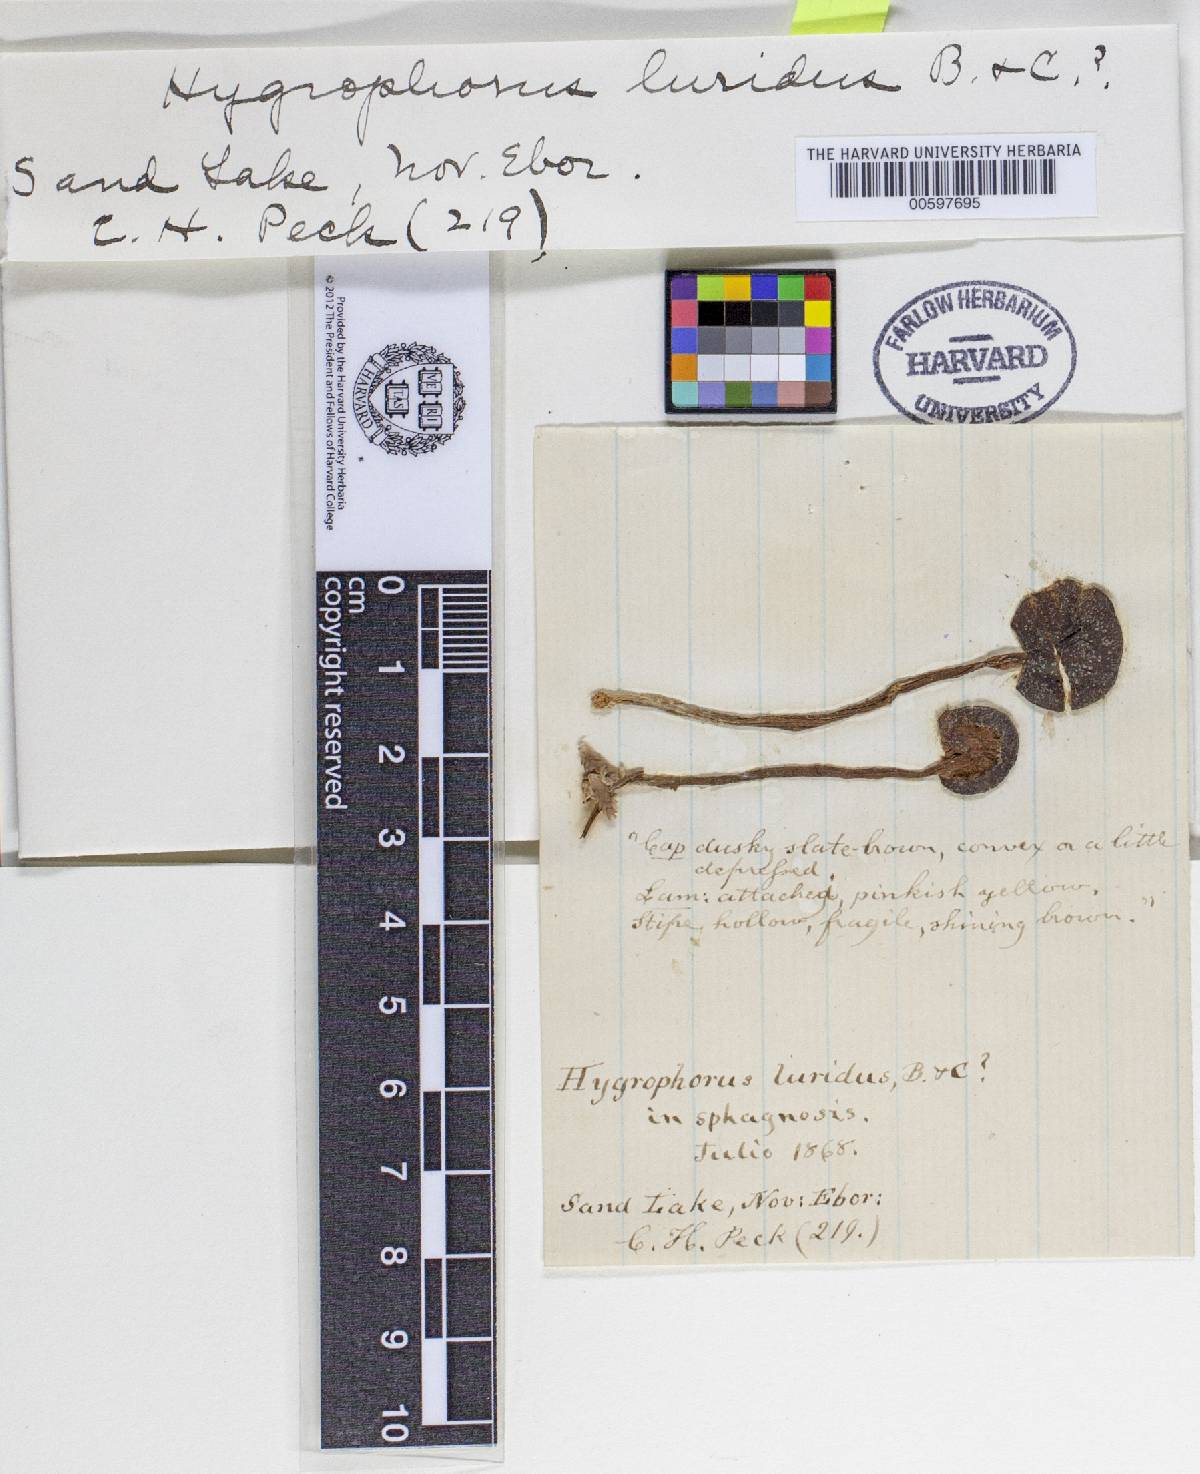 Hygrophorus luridus B. & C.?
Sand Lake, Nov. Ebor.
C. H. Peck (219)
THE HARVARD UNIVERSITY HERBARIA
00597695
FARLOW HERBARIUM
HARVARD
UNIVERSITY
Provided by the Harvard University Herbaria
© 2012 The President and Fellows of Harvard College
HARVARD
VE RI TAS
cm
copyright reserved
0
1
2
3
4
5
6
7
8
9
10
"Cap dusky slate-brown, convex or a little
depressed.
Lam: attached, pinkish yellow.
Stipe, hollow, fragile, shining brown."
Hygrophorus luridus, B. & C?
in sphagnosis.
Julio 1868.
Sand Lake, Nov: Ebor:
C. H. Peck (219.)